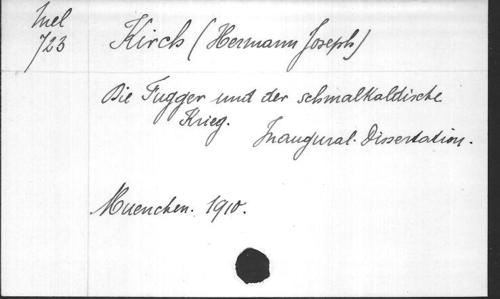 Inel
723
Kirch (Hermann Joseph)
Die Fugger und der schmalkaldische
Krieg.
Inaugural-Dissertation.
Muenchen. 1910.